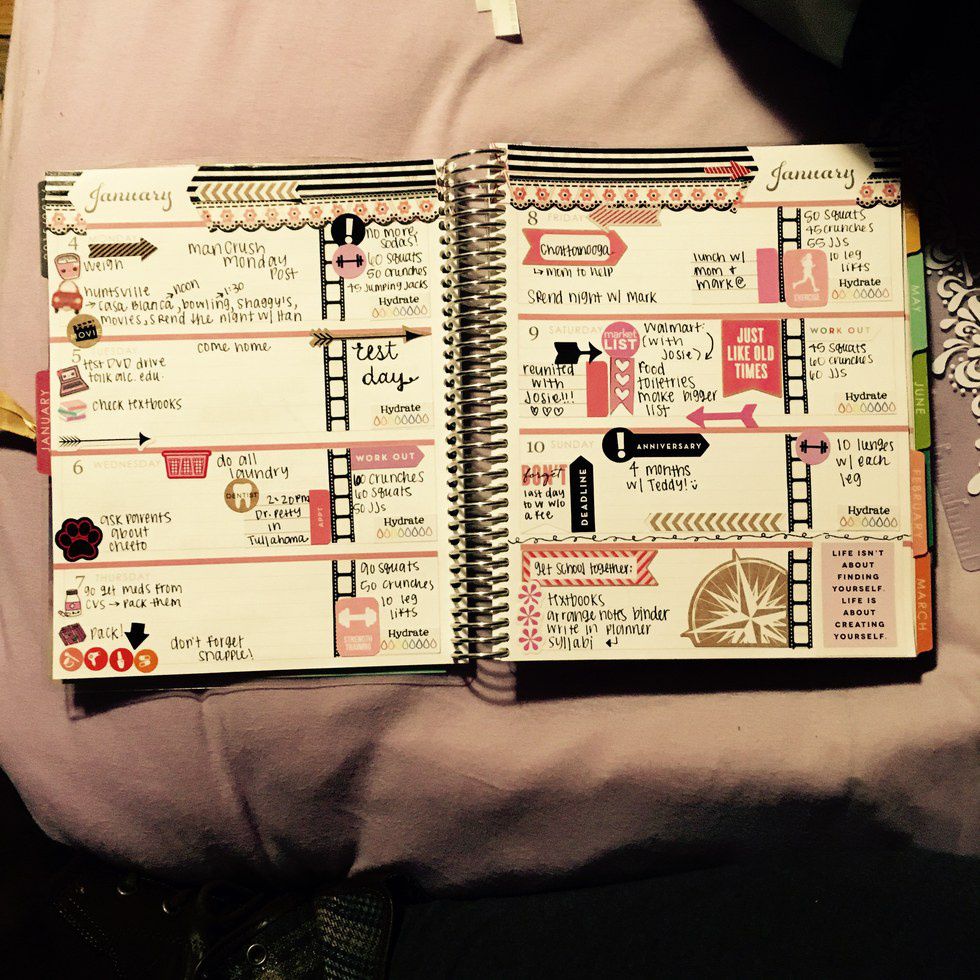 January
4
weigh
man crush
monday
post
!
no more
sodas!
60 squats
50 crunches
45 Jumping Jacks
Hydrate
noon
1:30
huntsville
→ casa Blanca, bowling, Shaggy's,
movies, spend the night w/ Han
MOVI
5 TUESDAY
come home
test DVD drive
talk alc.edu.
check textbooks
rest
day
Hydrate
6 WEDNESDAY
do all
laundry
DENTIST
2:20pm
Dr. Petty
in
Tullahoma
APPT
ask parents
about
cheeto
WORK OUT
60 crunches
60 squats
50 JJs
Hydrate
7 THURSDAY
go get meds from
CVS → pack them
pack!
don't forget
snapple!
90 squats
50 crunches
10 leg
lifts
STRENGTH
TRAINING
Hydrate
January
8 FRIDAY
Chattanooga
→ mom to help
Spend night w/ Mark
lunch w/
mom +
mark @
50 squats
45 crunches
55 JJs
10 leg
lifts
EXERCISE
Hydrate
9 SATURDAY
reunited
with
Josie!!!
♡♡♡
market
LIST
Walmart:
(with
Josie)
food
toiletries
make bigger
list
JUST
LIKE OLD
TIMES
WORK OUT
45 squats
60 crunches
60 JJs
Hydrate
10 SUNDAY
! ANNIVERSARY
DON'T
forget
last day
to w w/o
a fee
DEADLINE
4 months
w/ Teddy!
10 lunges
w/ each
leg
Hydrate
get school together:
textbooks
arrange notes binder
write in planner
syllabi
LIFE ISN'T
ABOUT
FINDING
YOURSELF.
LIFE IS
ABOUT
CREATING
YOURSELF.
JANUARY
MAY
JUNE
FEBRUARY
MARCH